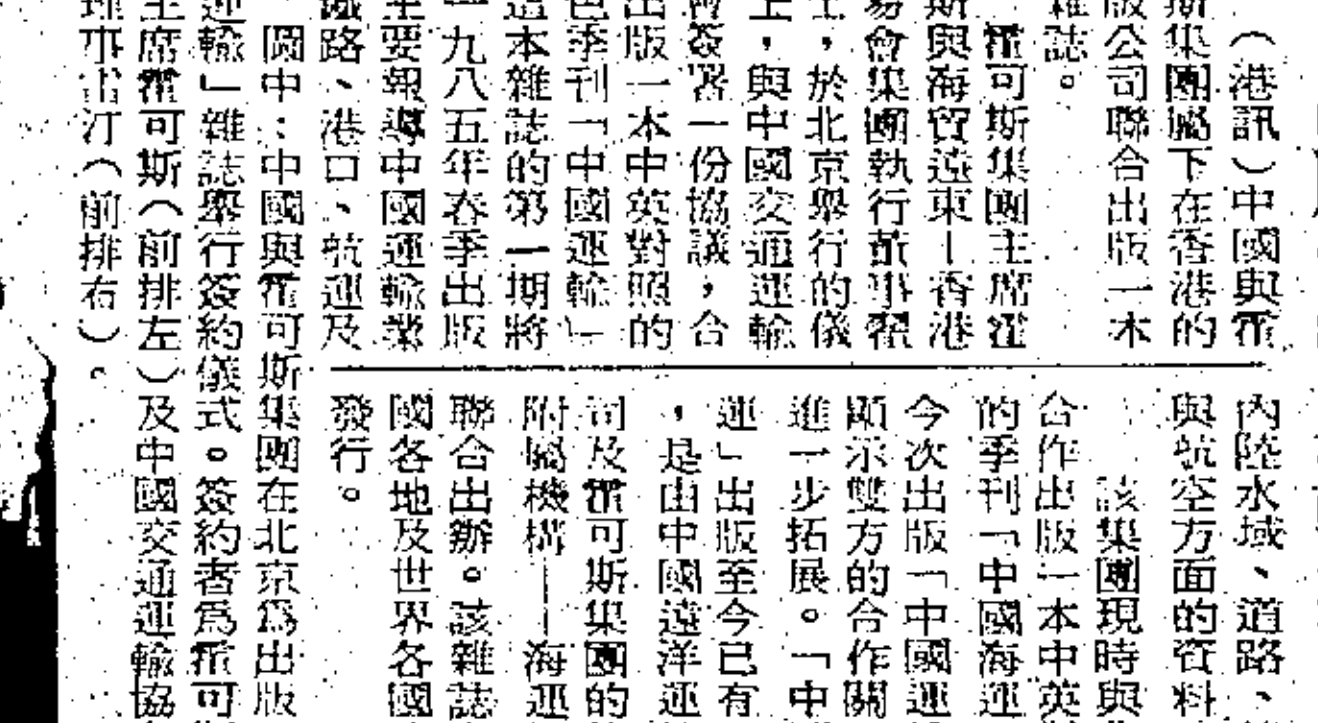 （港訊）中國與霍
斯集團屬下在香港的
版公司聯合出版一本
雜誌。
霍可斯集團主席霍
斯與海貿遠東—香港
易會集團執行董事翟
士，於北京舉行的儀
上，與中國交通運輸
會簽署一份協議，合
出版一本中英對照的
色季刊「中國運輸」
這本雜誌的第一期將
一九八五年春季出版
主要報導中國運輸業
鐵路、港口、航運及
內陸水域、道路、
與航空方面的資料
該集團現時與
合作出版一本中英
的季刊「中國海運
今次出版「中國運
顯示雙方的合作關
進一步拓展。「中
運」出版至今已有
，是由中國遠洋運
司及霍可斯集團的
附屬機構——海運
聯合出辦。該雜誌
國各地及世界各國
發行。
圖中：中國與霍可斯集團在北京為出版
運輸」雜誌舉行簽約儀式。簽約者爲霍可
主席霍可斯（前排左）及中國交通運輸協
理事雷汀（前排右）。